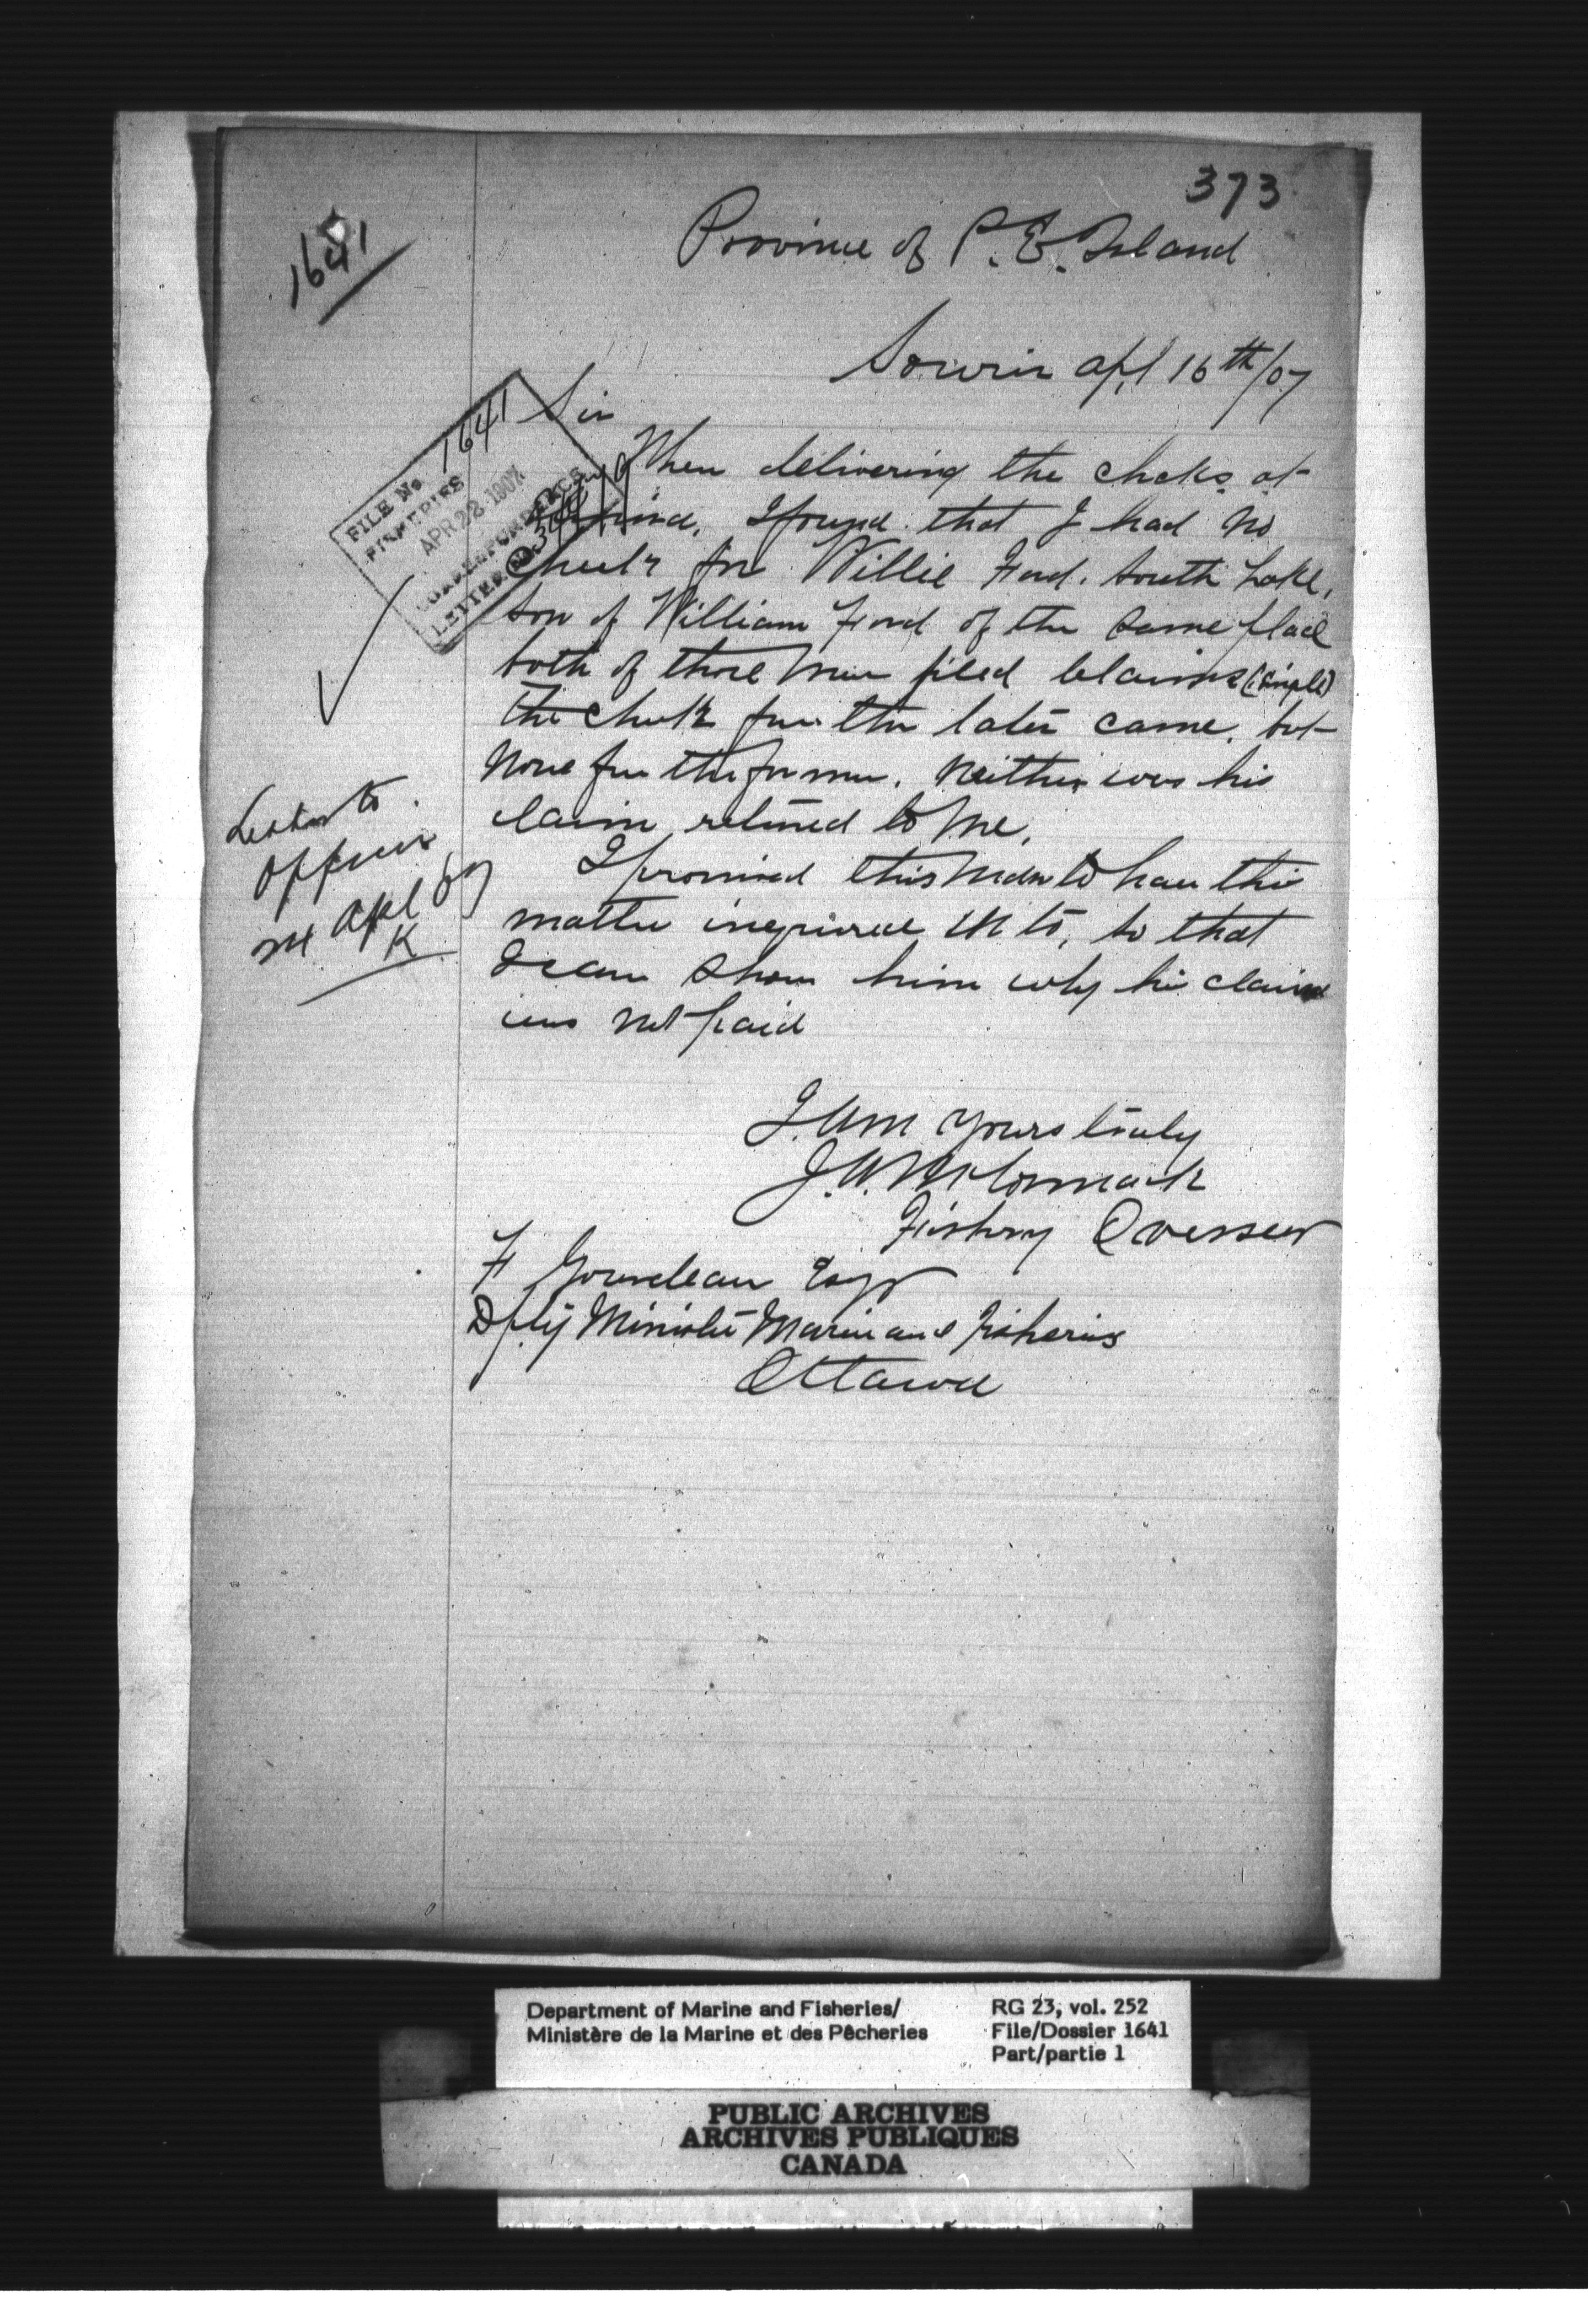 373
1641
Province of P. E. Island
Souris apl 16th/07
Sir
FILE No. 1641
FISHERIES
APR 22 1907
CORRESPONDENCE
LETTER No.
When delivering the cheks at
I found that I had no
Check for Willie Ford. South Lake,
Son of William Ford of the Same place
both of those men filed claims (single)
The check for the later came, but
None for the former. Neither was his
claim returned to Me.
I promised this man to have this
matter inquired into, so that
I can show him why his claim
was not paid
Letter to
Officer
24 Apl 07
K
I. Am Yours truly
J. A. McCormack
Fishery Overseer
F Gourdeau Esqr
Dpty Minister Marine and Fisheries
Ottawa
Department of Marine and Fisheries/
Ministère de la Marine et des Pêcheries
RG 23, vol. 252
File/Dossier 1641
Part/partie 1
PUBLIC ARCHIVES
ARCHIVES PUBLIQUES
CANADA